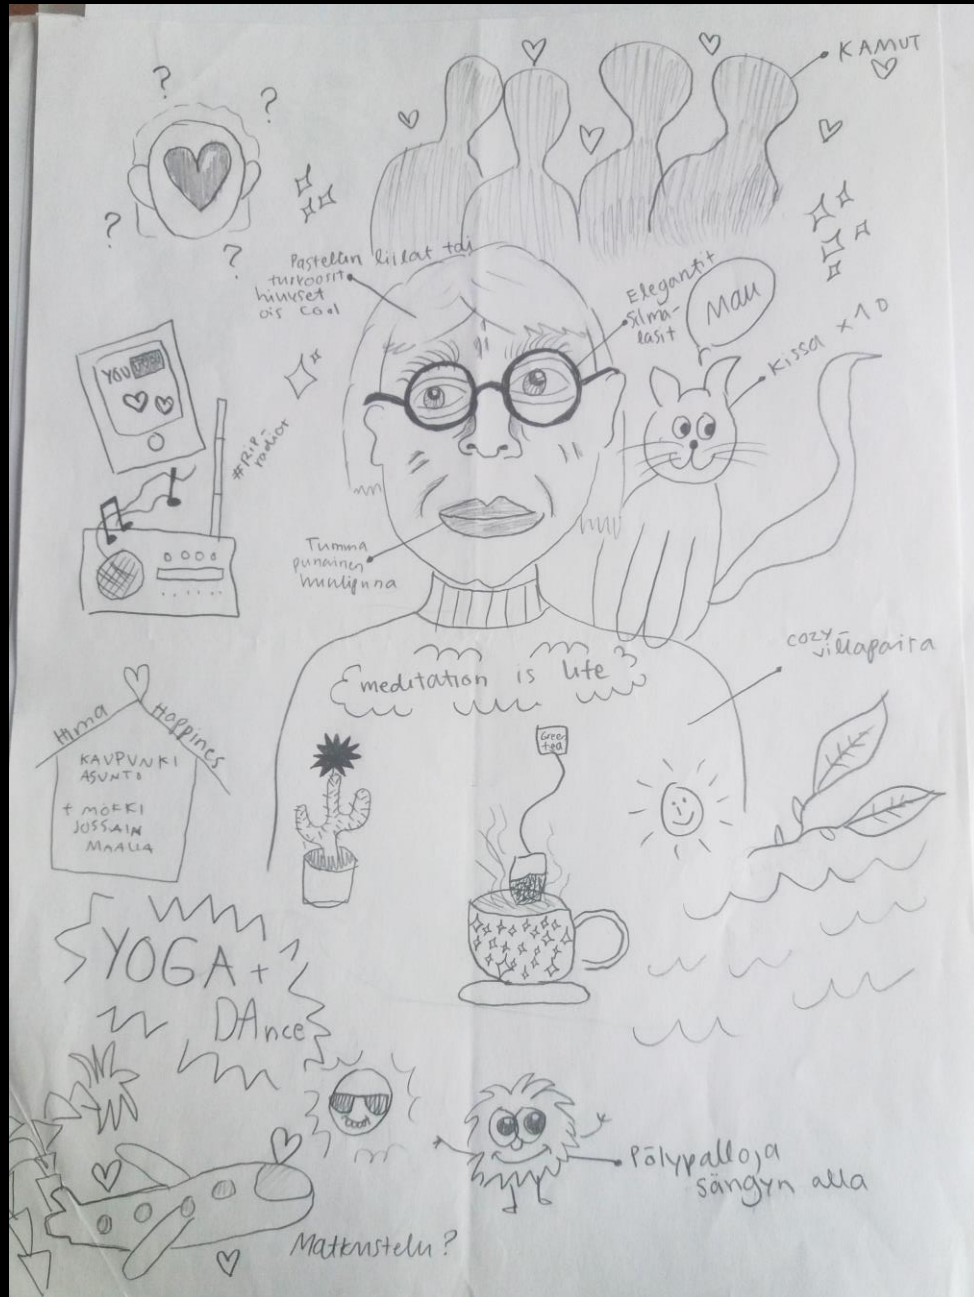 KAMUT
?
?
?
?
Pastellin liilat tai
turkoosit
hiukset
ois cool
Elegantit
silmä-
lasit
Mau
Kissa x 10
YOU
#RIP-
radiot
Tumma
punainen
huulipuna
cozy-
villapaita
meditation is life
Green
tea
Hima Happines
KAUPUNKI
ASUNTO
+ MÖKKI
JOSSAIN
MAALLA
YOGA +
DAnce
Pölypalloja
sängyn alla
Matkustelu?